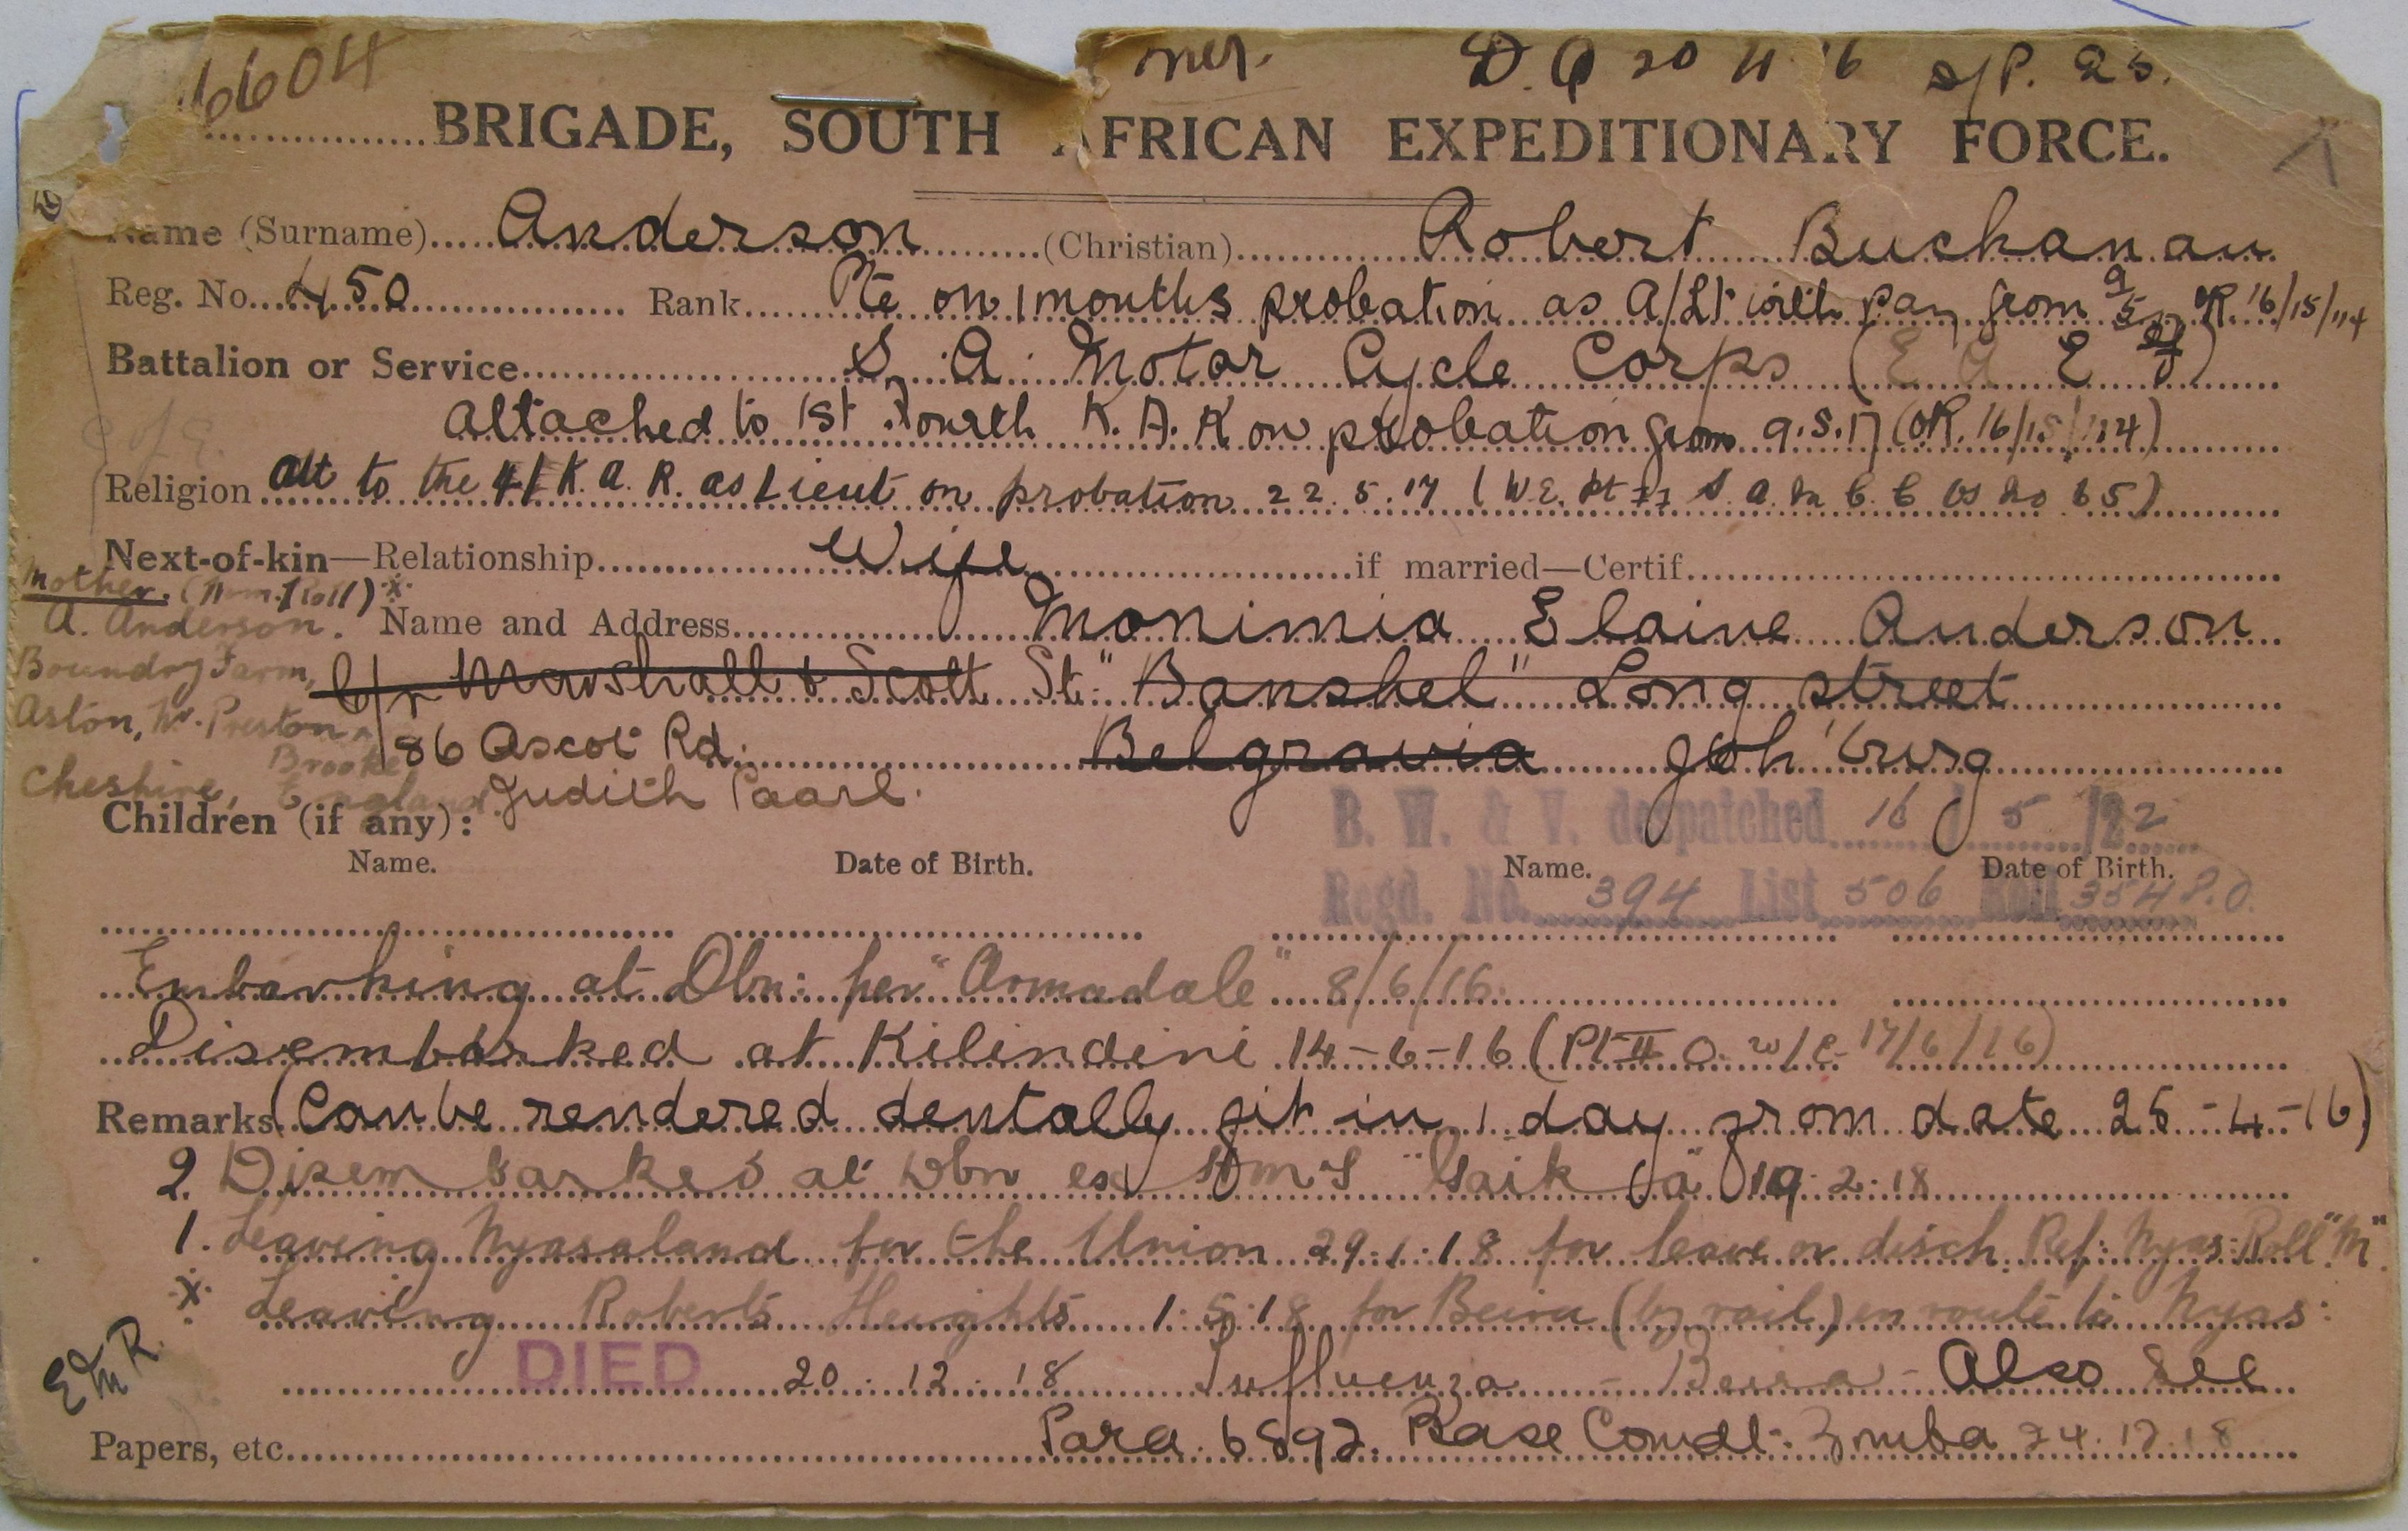 6604
D. O 20 11 16 S/P. 25.
BRIGADE, SOUTH AFRICAN EXPEDITIONARY FORCE.
Name (Surname) Anderson (Christian) Robert Buchanan
Reg. No. 450 Rank Pte on 1 months probation as A/Lt with pay from 9/5/17 OR. 16/15/114
Battalion or Service S. A. Motor Cycle Corps (E A E F)
C of E.
attached to 1st Fourth K. A. R on probation from 9.5.17 (OR. 16/15/114)
Religion att to the 4/K. A. R. as Lieut on probation 22. 5. 17 (W.E.
Next-of-kin—Relationship Wife if married—Certif.
Mother. (Nom. Roll) *
A. Anderson. Name and Address Monimia Elaine Anderson
Boundry Farm, c/o Marshall & Scott St. "Banshel" Long street
Aston, Nr. Preston 186 Ascot Rd. Belgravia Joh'burg
Brooke
Cheshire, England. Judith Paarl.
Children (if any):
B. W. & V. despatched 16 / 5 /22
Name. Date of Birth. Name. Date of Birth.
Regd. No. 394 List 506 Roll 3548.0.
Embarking at Dbn: per "Armadale" 8/6/16.
Disembarked at Kilindini 14-6-16 (Pt II O. w/e 17/6/16)
Remarks (Can be rendered dentally fit in 1 day from date 25-4-16)
2. Disembarked at Dbn ex HMS "Gaika" 19.2.18
1. Leaving Nyasaland for the Union 29.1.18 for leave or disch. Ref: Nyas: Roll "M".
* Leaving Roberts Heights 1.5.18 for Beira (by rail) en route to Nyas:
E M R.
DIED 20.12.18 Influenza - Beira - Also see
Papers, etc. Para. 6892. Base Comdt. Zomba 24.12.18